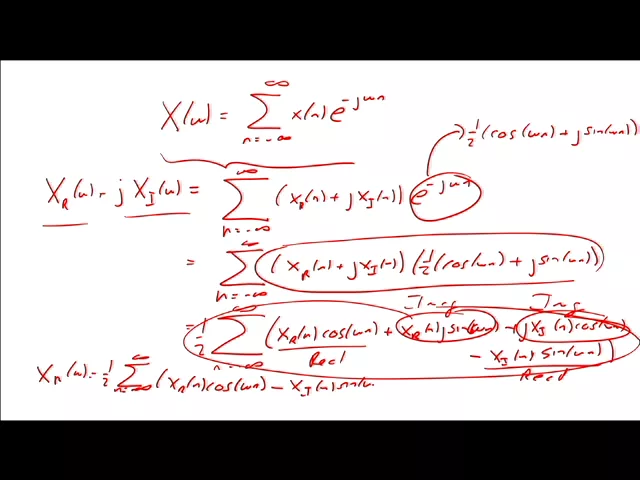 X(ω) = ∑_{n=-∞}^{∞} x(n) e^{-jωn}
½(cos(ωn) + j sin(ωn))
X_R(ω) - j X_I(ω) = ∑_{n=-∞}^{∞} (X_R(n) + j X_I(n)) e^{-jωn}
= ∑_{n=-∞}^{∞} (X_R(n) + j X_I(n)) (½(cos(ωn) + j sin(ωn)))
Img Img
= ½ ∑_{n=-∞}^{∞} (X_R(n) cos(ωn) + X_R(n) j sin(ωn) + j X_I(n) cos(ωn)
Real
- X_I(n) sin(ωn))
Real
X_R(ω) = ½ ∑_{n=-∞}^{∞} (X_R(n) cos(ωn) - X_I(n) sin(ω